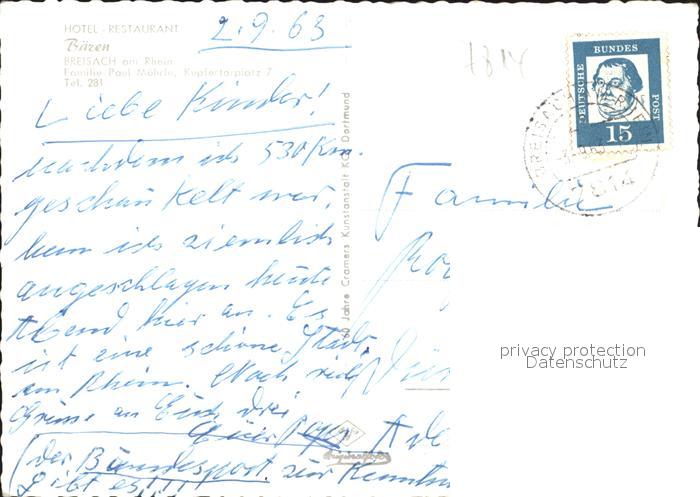 HOTEL - RESTAURANT
Bären
BREISACH am Rhein
Familie Paul Möhrle, Kupfertorplatz 7
Tel. 281
2.9.63
7814
DEUTSCHE BUNDES POST
15
BREISACH
7814
Liebe Kinder!
nachdem ich 530 Km.
geschaukelt war,
kam ich ziemlich
angeschlagen heute
Abend hier an. Es
ist eine schöne Stadt
am Rhein.
Grüsse an Euch drei
Euer
(der Bundespost zur Kenntn
gibt es!!!!
60 Jahre Cramers Kunstanstalt KG, Dortmund
Familie
privacy protection
Datenschutz